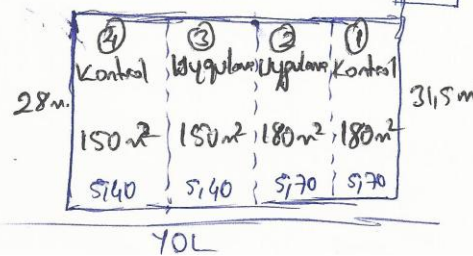 ④ ③ ② ①
Kontrol Uygulama Uygulama Kontrol
28 m. 31,5 m
150 m² 150 m² 180 m² 180 m²
5,40 5,40 5,70 5,70
YOL